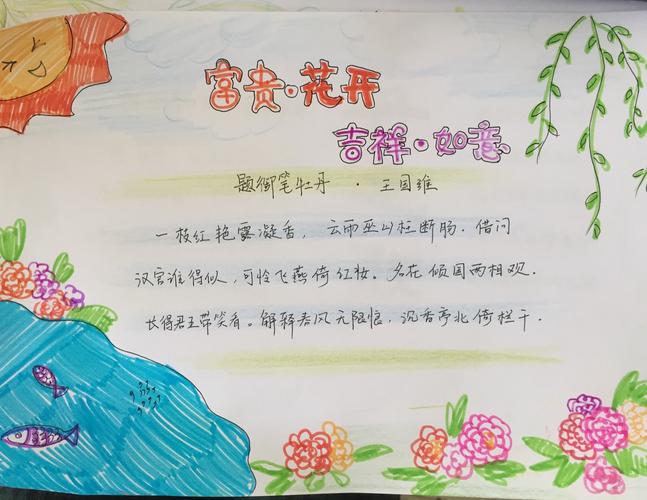 富贵·花开
吉祥·如意
题御笔牡丹·王国维
一枝红艳露凝香,云雨巫山枉断肠.借问
汉宫谁得似,可怜飞燕倚红妆。名花倾国两相观.
长得君王带笑看。解释春风无限恨,沉香亭北倚栏干.